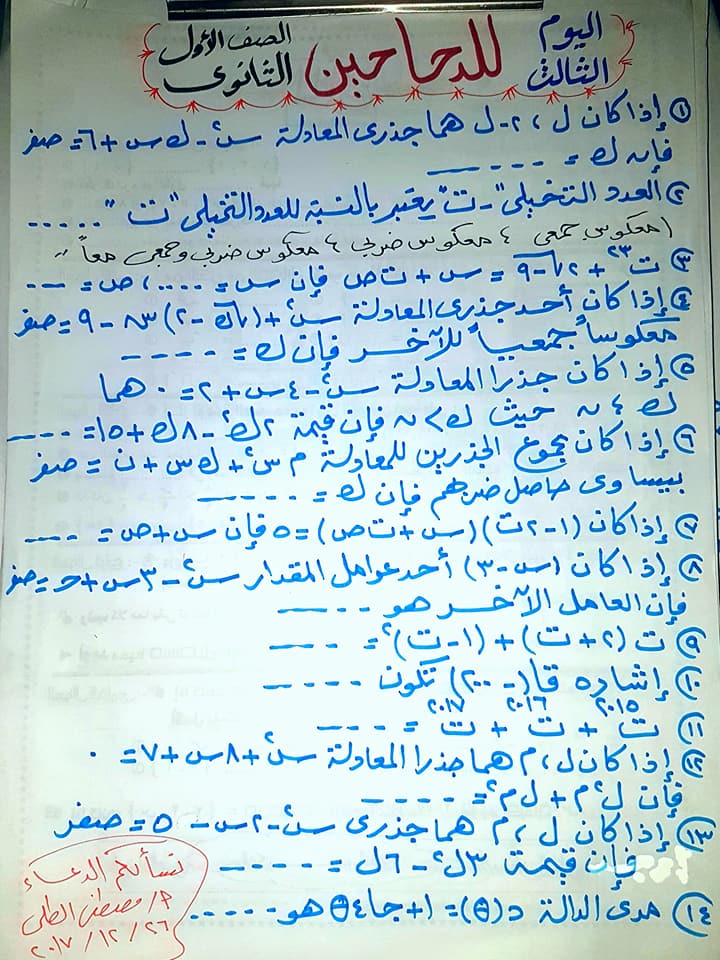 اليوم الثالث
للدحاحين
الصف الأول الثانوى
① إذا كان ل ، ٢ - ل هما جذرى المعادلة س٢ - ك س + ٦ = صفر
فإن ك = -----
② العدد التخيلى "- ت" يعتبر بالنسبة للعدد التخيلى "ت" .....
(معكوس جمعى ، معكوس ضربى ، معكوس ضربى وجمعى معاً)
③ ت٢٣ + ٢√-٩ = س + ت ص فإن س = .... ، ص = ---
④ إذا كان أحد جذرى المعادلة س٢ + (√ك - ٢) س - ٩ = صفر
معكوساً جمعياً للآخر فإن ك = ----
⑤ إذا كان جذرا المعادلة س٢ - ٤ س + ٢ = ٠ هما
ك ، ن حيث ك > ن فإن قيمة ٢ك٢ - ٨ك + ١٥ = ----
⑥ إذا كان مجموع الجذرين للمعادلة م س٢ + ك س + ن = صفر
يساوى حاصل ضربهم فإن ك = -----
⑦ إذا كان (١ - ٢ت) (س + ت ص) = ٥ فإن س + ص = ---
⑧ إذا كان (س - ٣) أحد عوامل المقدار س٢ - ٣س + حـ = صفر
فإن العامل الآخر هو ----
⑨ ت (٢ + ت) + (١ - ت)٢ = ----
⑩ إشاره قا (- ٢٠٠) تكون ----
⑪ ت٢٠١٥ + ت٢٠١٦ + ت٢٠١٧ = ----
⑫ إذا كان ل ، م هما جذرا المعادلة س٢ + ٨ س + ٧ = ٠
فإن ل٢م + ل م٢ = -----
⑬ إذا كان ل ، م هما جذرى س٢ - ٢س - ٥ = صفر
أوجد فإن قيمة ٣ل٢ - ٦ل = -----
⑭ مدى الدالة د(θ) = ١ + جا٤θ هو -----
نسألكم الدعاء
٢٦ / ١٢ / ٢٠١٧